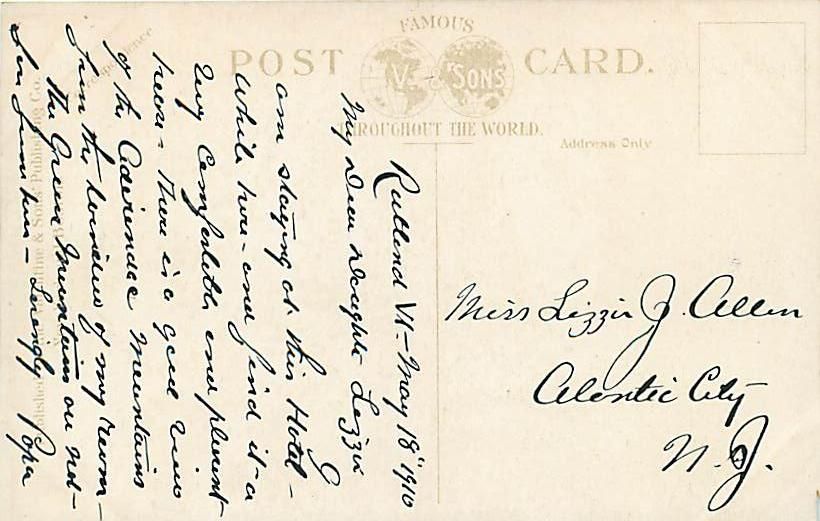 FAMOUS
POST CARD.
V. & SONS
THROUGHOUT THE WORLD.
Address Only
Correspondence
Rutland Vt - May 18" 1910
My Dear Daughter Lizzie
I
am staying at this Hotel -
while here - and find it a
very comfortable and plesent
here - There is a good view
of the Aderendac Mountains
from the window of my room -
the Green Mountains are not -
far from here - Lovingly Papa
Miss Lizzie J. Allen
Atlantic City
N. J.
& Sons' Publishing Co.